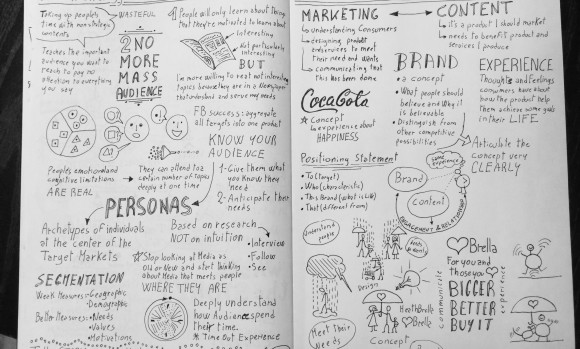 Taking up people's
time with nonstrategic
contents
WASTEFUL
Teaches the important
audience you want to
reach to pay no
attention to everything
you say
2 NO
MORE
MASS
AUDIENCE
People will only learn about things
that they're motivated to learn about
interesting
Not particularly
interesting
BUT
I'm more willing to read not interesting
topics because they are in a Newspaper
that understand and serve my needs
FB success: aggregate
all targets into one product
KNOW YOUR
AUDIENCE
1-Give them what
you know they
need
2-Anticipate their
needs
People's emotional and
cognitive limitations
ARE REAL
They can attend to a
certain number of topics
deeply at one time
PERSONAS
Archetypes of individuals
at the Center of the
Target Markets
Based on research
NOT on intuition
• Interview
• Follow
• See
Stop looking at Media as
Old or New and start thinking
about Media that meets people
WHERE THEY ARE
SEGMENTATION
Weak Measures: • Geographic
• Demographic
Better Measures: • Needs
• Values
• Motivations
Deeply understand
how Audience spend
their time.
* Time Out Experience
MARKETING
understanding Consumers
designing product
services to meet
their need and wants
communicating that
this has been done
CONTENT
it's a product I should market
needs to benefit product and
services I produce
BRAND
a concept
• What people should
believe and Why it
is believable
• Distinguish from
other competitive
possibilities
EXPERIENCE
Thoughts and Feelings
consumers have about
how the product help
them achieve some goals
in their LIFE
CocaCola
Concept
experience about
HAPPINESS
Articulate the
concept very
CLEARLY
Positioning Statement
• To (target)
• Who (characteristic)
• This Brand (what is like)
• That (different from)
same
experience
Brand
Content
ENGAGEMENT & RELATIONSHIP
Understand
people
Design
Meet their
needs
Brella
HeathBrella
Brella
Concept
communicate
For you and
those you
BIGGER
BETTER
BUY IT
experience